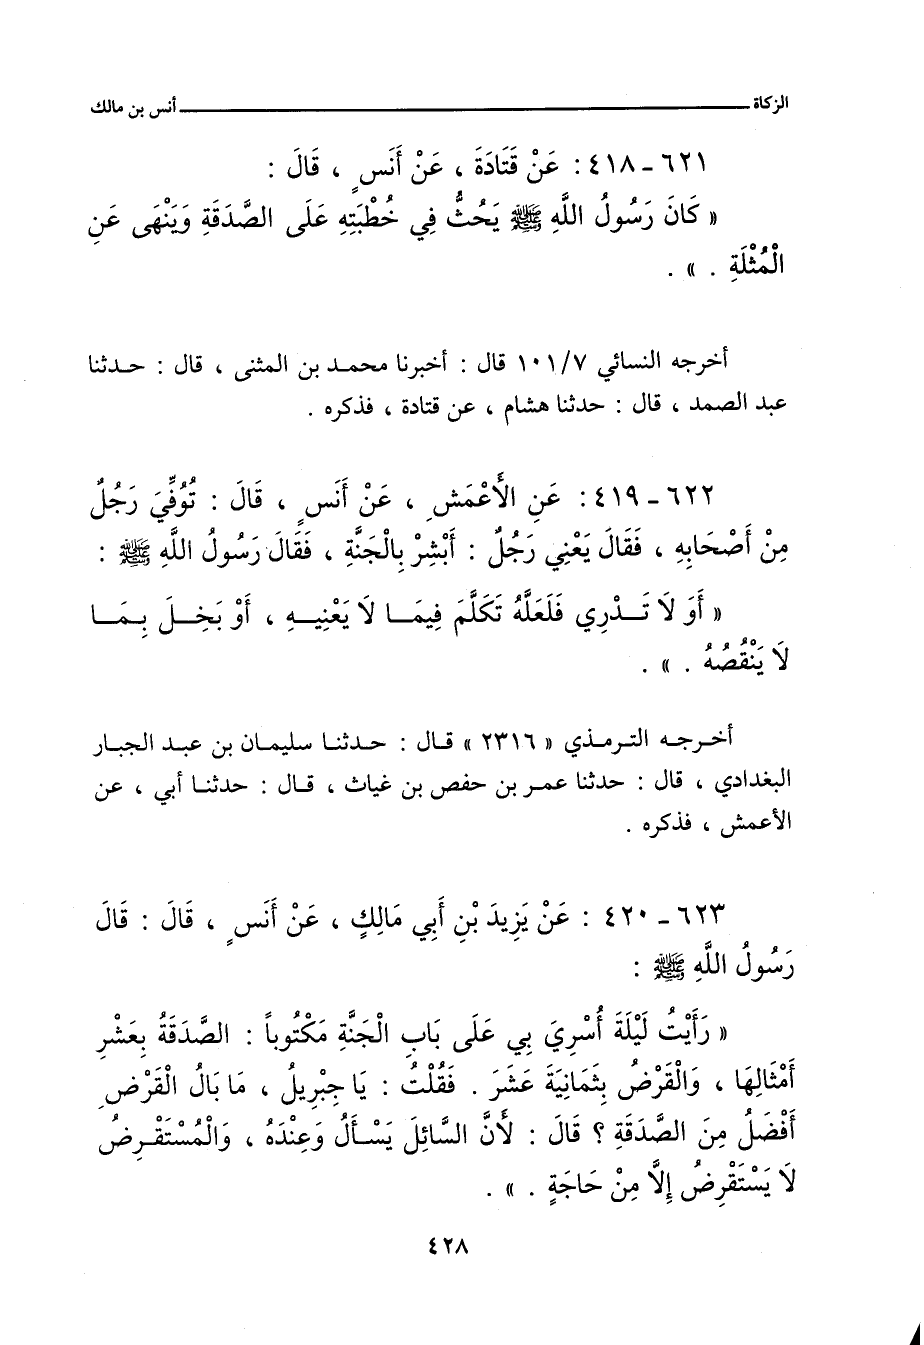 الزكاة ــــــــــ أنس بن مالك
٦٢١ - ٤١٨ : عَنْ قَتَادَةَ ، عَنْ أَنَسٍ ، قَالَ :
« كَانَ رَسُولُ اللَّهِ ﷺ يَحُثُّ فِي خُطْبَتِهِ عَلَى الصَّدَقَةِ وَيَنْهَى عَنِ
الْمُثْلَةِ . » .
أخرجه النسائي ١٠١/٧ قال : أخبرنا محمد بن المثنى ، قال : حدثنا
عبد الصمد ، قال : حدثنا هشام ، عن قتادة ، فذكره .
٦٢٢ - ٤١٩ : عَنِ الْأَعْمَشِ ، عَنْ أَنَسٍ ، قَالَ : تُوُفِّيَ رَجُلٌ
مِنْ أَصْحَابِهِ ، فَقَالَ يَعْنِي رَجُلٌ : أَبْشِرْ بِالْجَنَّةِ ، فَقَالَ رَسُولُ اللَّهِ ﷺ :
« أَوَ لَا تَدْرِي فَلَعَلَّهُ تَكَلَّمَ فِيمَا لَا يَعْنِيهِ ، أَوْ بَخِلَ بِمَا
لَا يَنْقُصُهُ . » .
أخرجه الترمذي « ٢٣١٦ » قال : حدثنا سليمان بن عبد الجبار
البغدادي ، قال : حدثنا عمر بن حفص بن غياث ، قال : حدثنا أبي ، عن
الأعمش ، فذكره .
٦٢٣ - ٤٢٠ : عَنْ يَزِيدَ بْنِ أَبِي مَالِكٍ ، عَنْ أَنَسٍ ، قَالَ : قَالَ
رَسُولُ اللَّهِ ﷺ :
« رَأَيْتُ لَيْلَةَ أُسْرِيَ بِي عَلَى بَابِ الْجَنَّةِ مَكْتُوباً : الصَّدَقَةُ بِعَشْرِ
أَمْثَالِهَا ، وَالْقَرْضُ بِثَمَانِيَةَ عَشَرَ . فَقُلْتُ : يَا جِبْرِيلُ ، مَا بَالُ الْقَرْضِ
أَفْضَلُ مِنَ الصَّدَقَةِ ؟ قَالَ : لأَنَّ السَّائِلَ يَسْأَلُ وَعِنْدَهُ ، وَالْمُسْتَقْرِضُ
لَا يَسْتَقْرِضُ إِلَّا مِنْ حَاجَةٍ . » .
٤٢٨